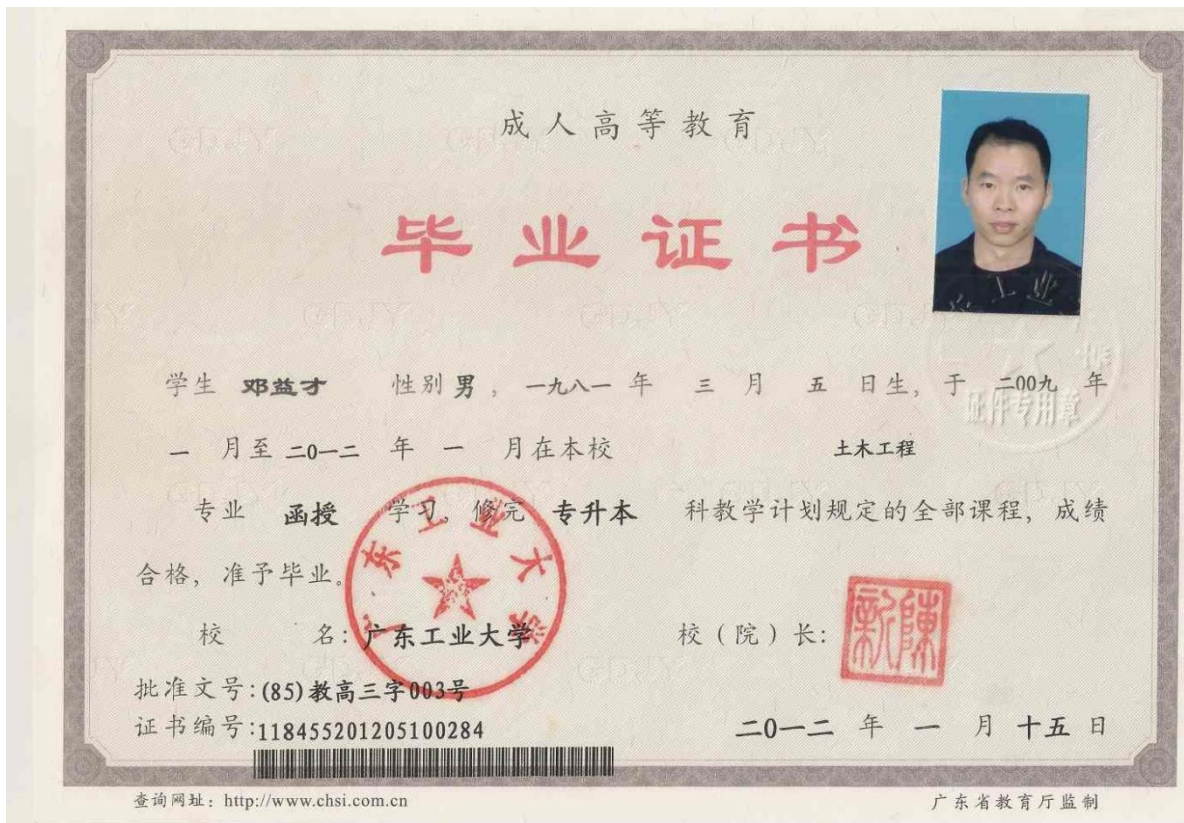 成人高等教育
毕业证书
学生 邓益才 性别 男 ，一九八一 年 三 月 五 日生，于 二00九 年
一 月至 二0一二 年 一 月在本校 土木工程
专业 函授 学习，修完 专升本 科教学计划规定的全部课程，成绩
合格，准予毕业。
校 名：广东工业大学 校（院）长：
陳新
广东工业大学
批准文号：(85)教高三字003号
证书编号：118455201205100284
二0一二 年 一 月 十五 日
查询网址：http://www.chsi.com.cn
广东省教育厅监制
工业
证件专用章